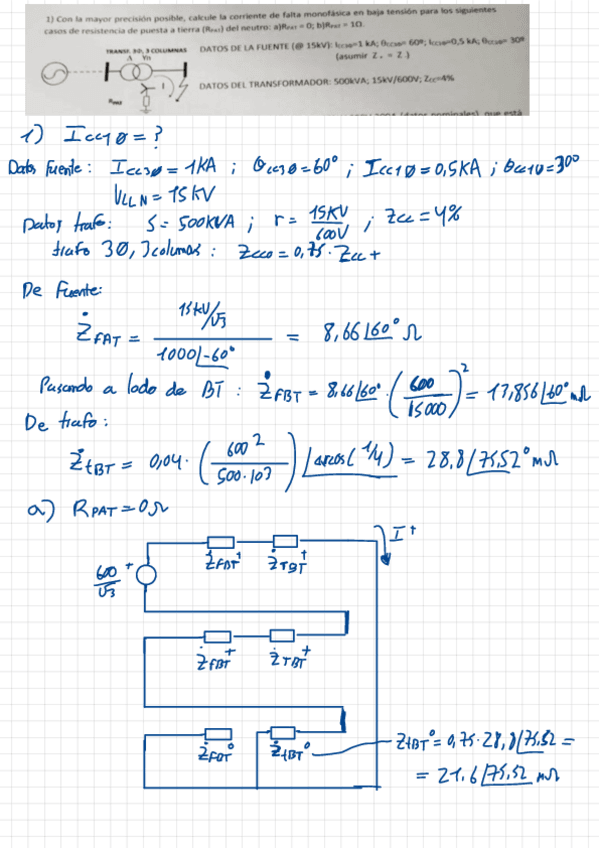 1) Con la mayor precisión posible, calcule la corriente de falta monofásica en baja tensión para los siguientes
casos de resistencia de puesta a tierra (RPAT) del neutro: a)RPAT = 0; b)RPAT = 1Ω.
TRANSF. 3∅, 3 COLUMNAS
Δ Yn
DATOS DE LA FUENTE (@ 15kV): Icc3∅=1 kA; θcc3∅= 60º; Icc1∅=0,5 kA; θcc1∅= 30º
(asumir Z₊ = Z₋)
DATOS DEL TRANSFORMADOR: 500kVA; 15kV/600V; Zcc=4%
RPAT
(datos nominales), que está
1) Icc1∅ = ?
Datos fuente: Icc3∅ = 1KA ; θcc3∅ = 60° ; Icc1∅ = 0,5KA ; θcc1∅ = 30°
ULLN = 15KV
Datos trafo: S = 500KVA ; r = 15KV/600V ; Zcc = 4%
trafo 3∅, 3columnas : Zcc0 = 0,75 · Zcc+
De Fuente:
ŻFAT = (15kV/√3)/(1000∠-60°) = 8,66∠60° Ω
Pasando a lado de BT : ŻFBT = 8,66∠60° · (600/15000)² = 17,856∠60° mΩ
De trafo:
ŻtBT = 0,04 · (600²/500·10³) ∠arcos(1/4) = 28,8∠75,52° mΩ
a) RPAT = 0Ω
600/√3 + ŻFBT⁺ ŻTBT⁺ I⁺
ŻFBT⁺ ŻTBT⁺
ŻFBT⁰ ŻtBT⁰ ZtBT⁰ = 0,75 · 28,8∠75,52 =
= 21,6∠75,52 mΩ